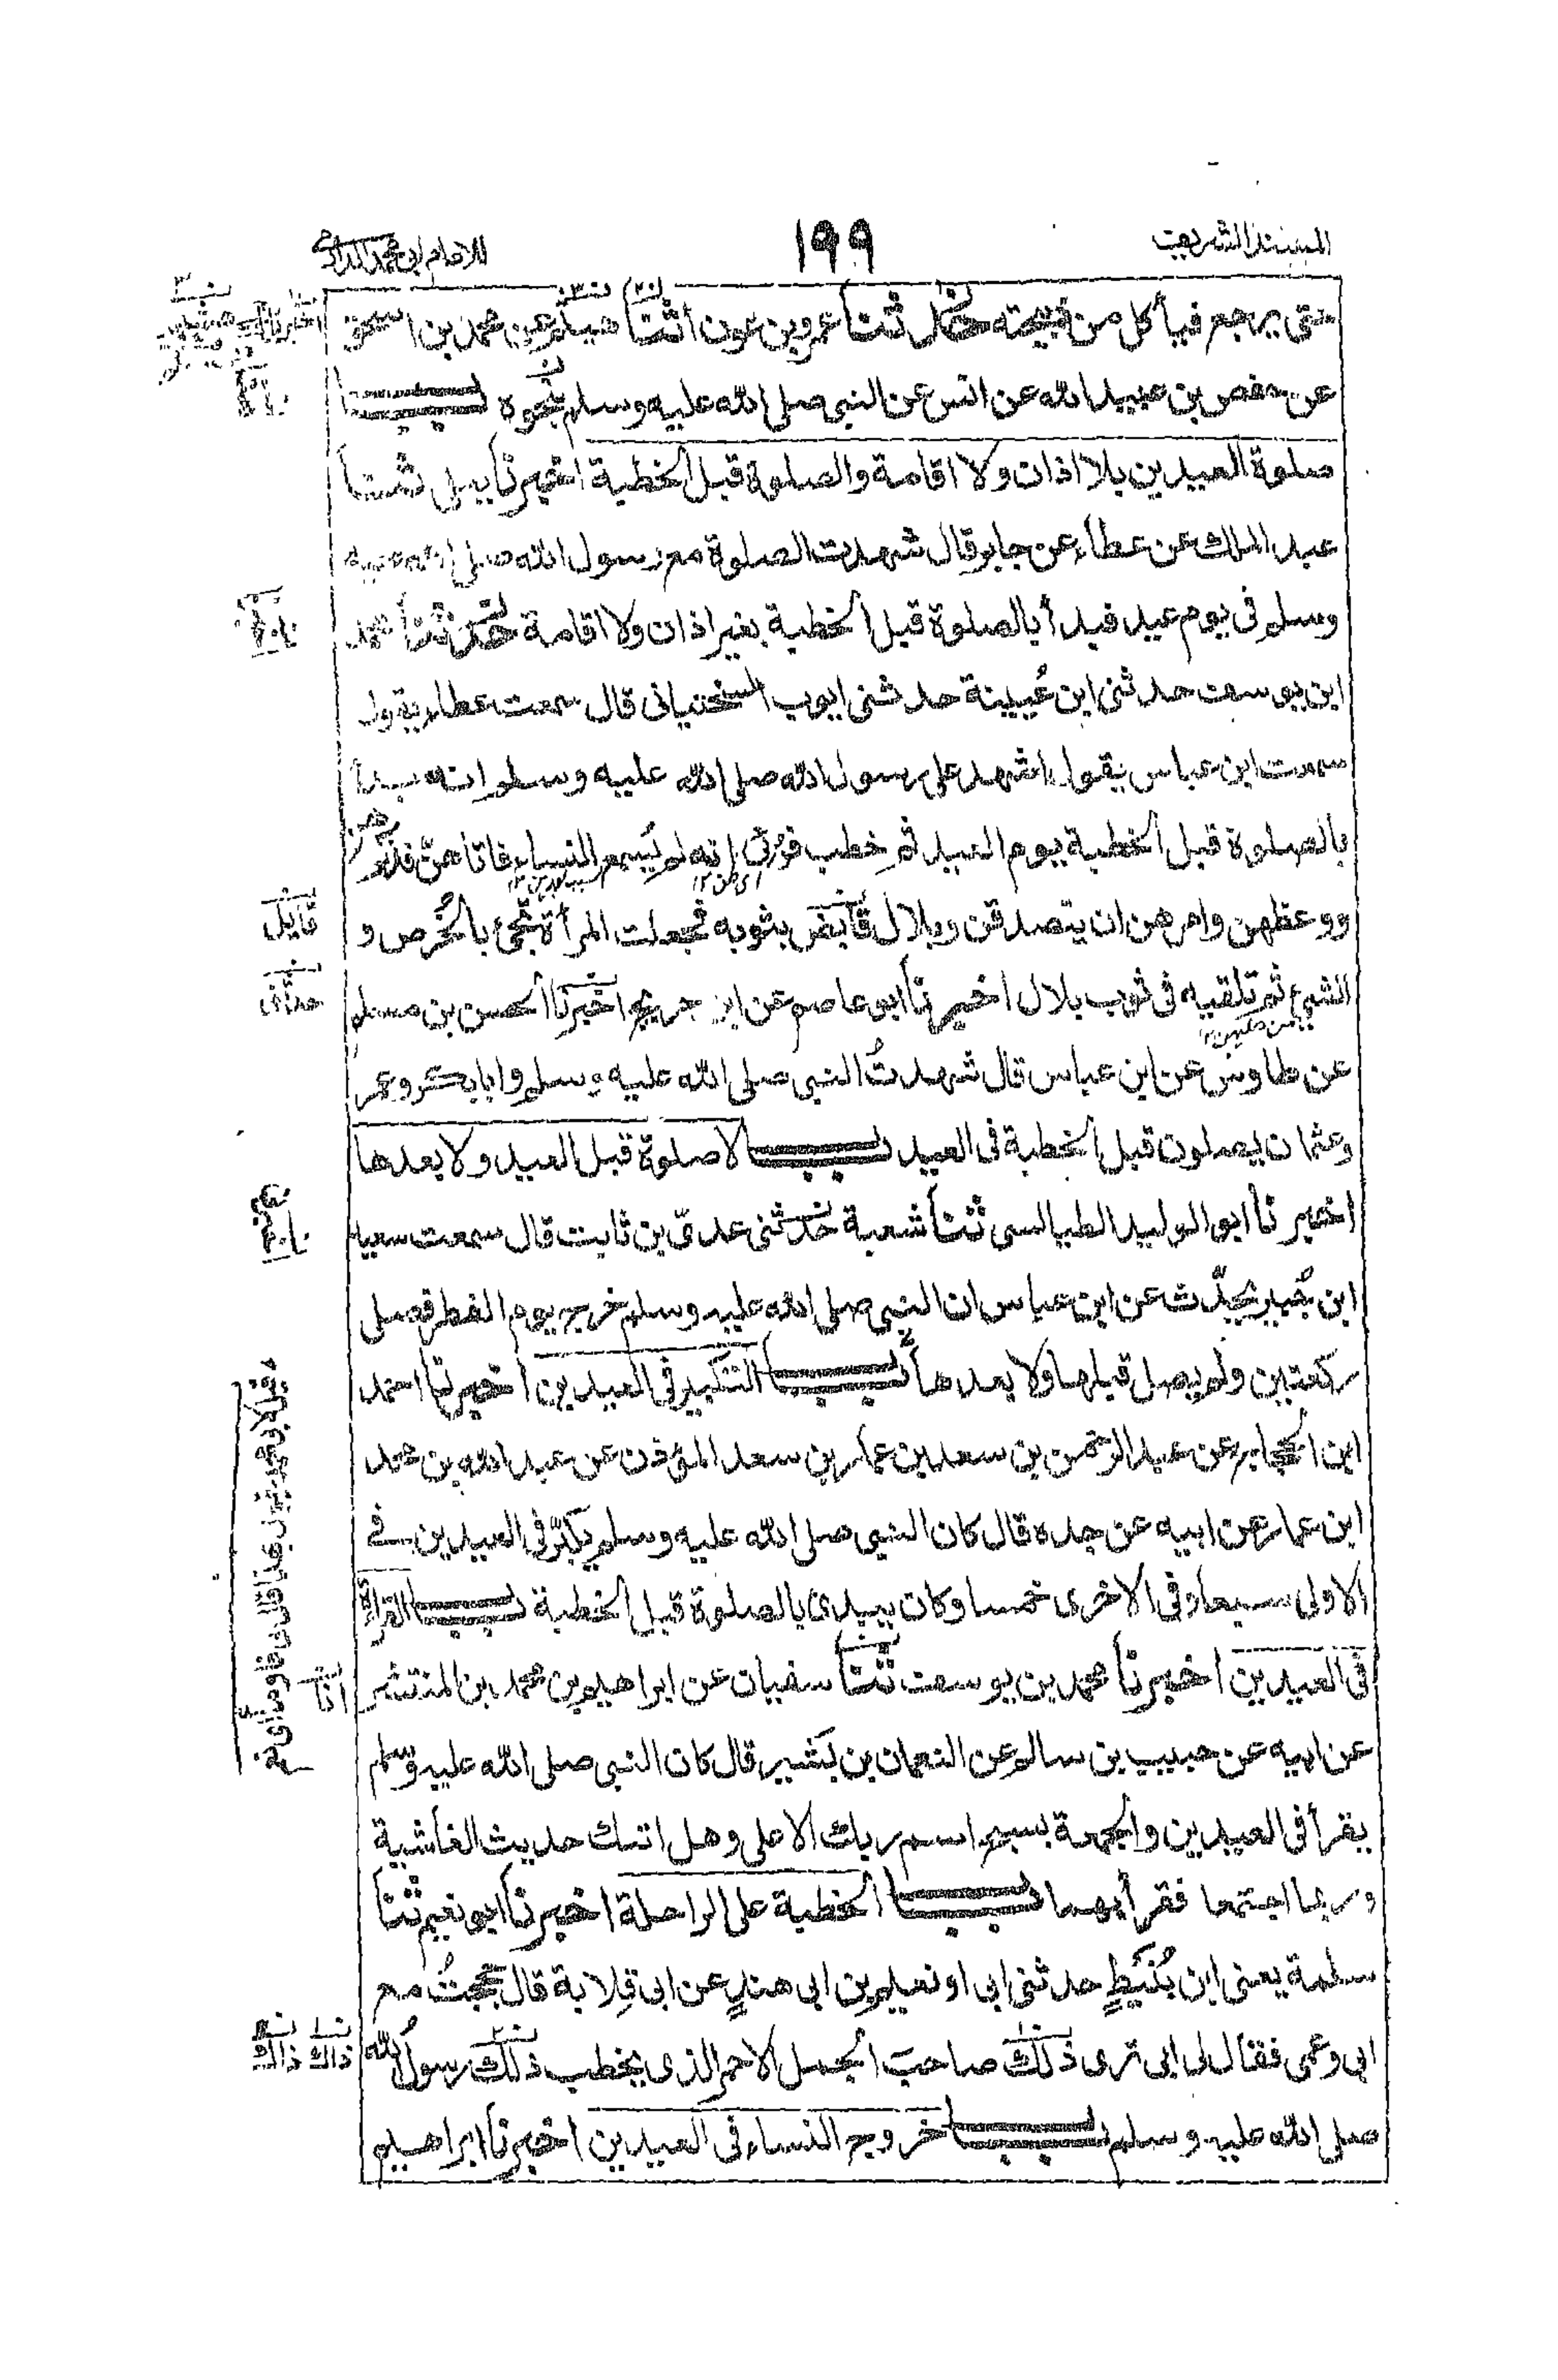 المسند الشريف
١٩٩
للامام ابى محمد الدارمى
حتى يرجع فيأكل من ذبيحته حدثنا عمرو بن عون انا هشيم عن محمد بن اسحق
عن حفص بن عبيد الله عن انس عن النبى صلى الله عليه وسلم نحوه باب
صلوة العيدين بلا اذان ولا اقامة والصلوة قبل الخطبة اخبرنا يعلى ثنا
عبد الملك عن عطاء عن جابر قال شهدت الصلوة مع رسول الله صلى الله عليه
وسلم فى يوم عيد فبدأ بالصلوة قبل الخطبة بغير اذان ولا اقامة حدثنا محمد
ابن يوسف حدثنى ابن عُيينة حدثنى ايوب السختيانى قال سمعت عطاء يقول
سمعت ابن عباس يقول اشهد على رسول الله صلى الله عليه وسلم انه بدأ
بالصلوة قبل الخطبة يوم العيد ثم خطب فرُئى انه لم يُسمع النساء فاتاهن فذكرهن
ووعظهن وامرهن ان يتصدقن وبلال قابض بثوبه فجعلت المرأة تجئ بالخُرص و
قايل
الشئ ثم تلقيه فى ثوب بلال اخبرنا ابو عاصم عن ابن جريج اخبرنا الحسن بن مسلم
حدثنى
عن طاوس عن ابن عباس قال شهدتُ النبى صلى الله عليه وسلم وابا بكر وعمر
وعثمان يصلون قبل الخطبة فى العيد باب لا صلوة قبل العيد ولا بعدها
اخبرنا ابو الوليد الطيالسى ثنا شعبة حدثنى عدىّ بن ثابت قال سمعت سعيد
ابن جُبير يحدّث عن ابن عباس ان النبى صلى الله عليه وسلم خرج يوم الفطر فصلى
ركعتين ولم يصل قبلها ولا بعدها باب التكبير فى العيدين اخبرنا احمد
ابن الحجاج عن عبد الرحمن بن سعد بن عمار بن سعد المؤذن عن عبد الله بن محمد
ابن عمار عن ابيه عن جده قال كان النبى صلى الله عليه وسلم يكبّر فى العيدين فى
الاولى سبعا وفى الاخرى خمسا وكان يبدئ بالصلوة قبل الخطبة باب القراءة
فى العيدين اخبرنا محمد بن يوسف ثنا سفيان عن ابراهيم بن محمد بن المنتشر
انا
عن ابيه عن حبيب بن سالم عن النعمان بن بَشير قال كان النبى صلى الله عليه وسلم
يقرأ فى العيدين والجمعة بسبح اسم ربك الاعلى وهل اتىك حديث الغاشية
وربما اجتمعا فقرأ بهما باب الخطبة على الراحلة اخبرنا ابو نعيم ثنا
سلمة يعنى ابن نُبَيطٍ حدثنى ابى او نعيم بن ابى هندٍ عن ابى قِلابة قال حججتُ مع
ابى وعمى فقال لى ابى ترى ذلك صاحبَ الجمل الاحمر الذى يخطب ذلك رسولُ الله
ذاك ذاك
صلى الله عليه وسلم باب خروج النساء فى العيدين اخبرنا ابراهيم